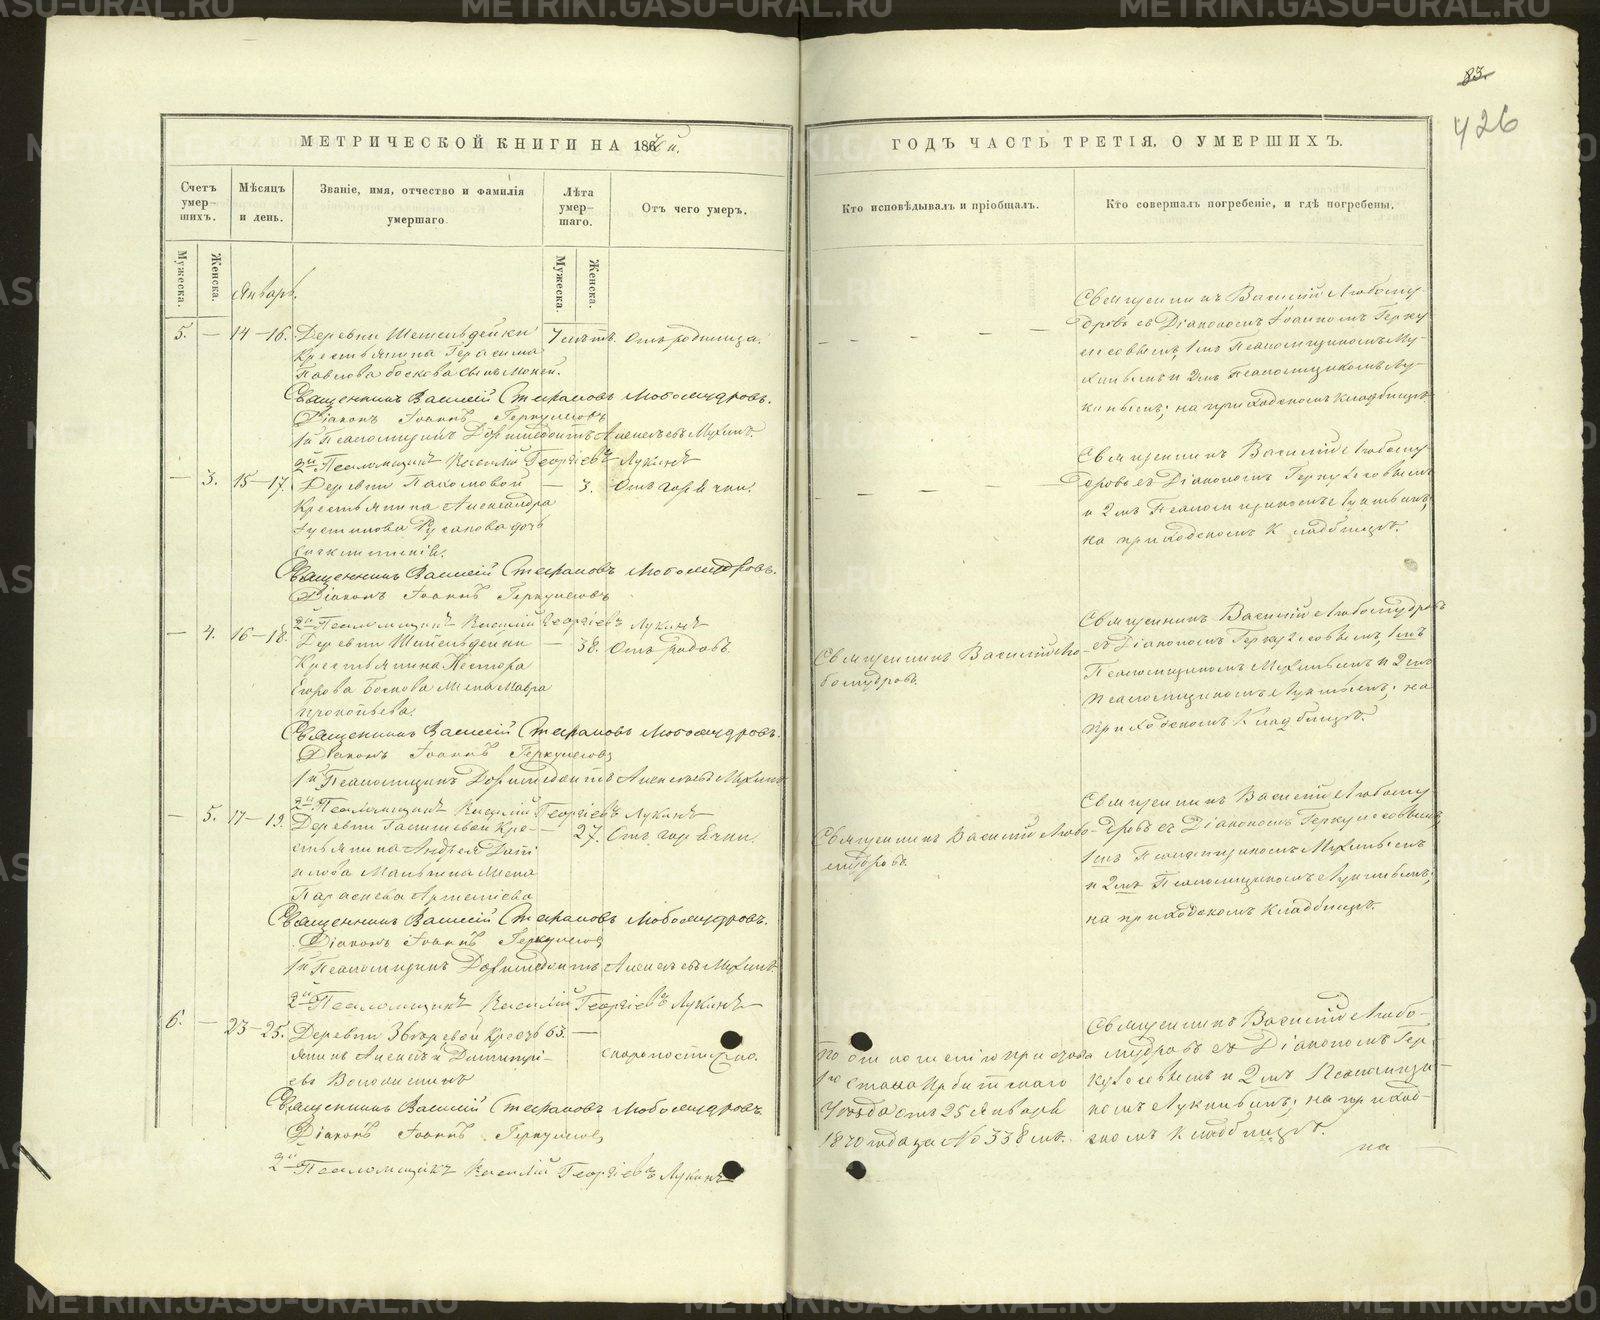 83.
426
МЕТРИЧЕСКОЙ КНИГИ НА 186
ГОДЪ ЧАСТЬ ТРЕТІЯ, О УМЕРШИХЪ.
Счетъ умер-шихъ.
Мѣсяцъ и день.
Званіе, имя, отчество и фамилія умершаго
Лѣта умер-шаго.
Отъ чего умеръ.
Кто исповѣдывалъ и пріобщалъ.
Кто совершалъ погребеніе, и гдѣ погребены.
Мужеска.
Женска.
Мужеска.
Женска.
Январь.
5. — 14—16. Деревни
Крестьянина Герасима
Павлова Бокова сынъ
Отъ родимца.
Священникъ Василій Стефановъ Любомудровъ.
Діаконъ Іоаннъ Геркулесовъ
1й Псаломщикъ Доримедонтъ Алексѣевъ Мухинъ.
2й Псаломщикъ Василій Георгіевъ Лукинъ
Священникъ Василій Любому-
дровъ съ Діакономъ Іоанномъ Герку-
лесовымъ, 1мъ Псаломщикомъ Му-
хинымъ и 2мъ Псаломщикомъ Лу-
кинымъ; на приходскомъ кладбищѣ
— 3. 15—17. Деревни Пахомовой — 3. Отъ горячки.
Крестьянина Александра
Іустинова Русакова дочь
Священникъ Василій Стефановъ Любомудровъ.
Діаконъ Іоаннъ Геркулесовъ
2й Псаломщикъ Василій Георгіевъ Лукинъ
Священникъ Василій Любому-
дровъ съ Діакономъ Геркулесовымъ
и 2мъ Псаломщикомъ Лукинымъ;
на приходскомъ кладбищѣ.
— 4. 16—18. Деревни — 38. Отъ родовъ.
Крестьянина Нестора
Егорова Бокова жена Мавра
Прокопьева.
Священникъ Василій Стефановъ Любомудровъ.
Діаконъ Іоаннъ Геркулесовъ
1й Псаломщикъ Доримедонтъ Алексѣевъ Мухинъ
2й Псаломщикъ Василій Георгіевъ Лукинъ
Священникъ Василій Лю-
бомудровъ.
Священникъ Василій Любомудровъ
съ Діакономъ Геркулесовымъ, 1мъ
Псаломщикомъ Мухинымъ и 2мъ
Псаломщикомъ Лукинымъ; на
приходскомъ кладбищѣ.
— 5. 17—19. Деревни Кре- — 27. Отъ горячки.
стьянина Андрея
жена
Параскева Артеміева
Священникъ Василій Стефановъ Любомудровъ.
Діаконъ Іоаннъ Геркулесовъ
1й Псаломщикъ Доримедонтъ Алексѣевъ Мухинъ
2й Псаломщикъ Василій Георгіевъ Лукинъ
Священникъ Василій Любо-
мудровъ.
Священникъ Василій Любому-
дровъ съ Діакономъ Геркулесовымъ,
1мъ Псаломщикомъ Мухинымъ
и 2мъ Псаломщикомъ Лукинымъ;
на приходскомъ кладбищѣ.
6. — 23—25. Деревни Звѣревой Кресть 63. —
янинъ Алексѣй Димитрі- скоропостижно.
евъ
Священникъ Василій Стефановъ Любомудровъ
Діаконъ Іоаннъ Геркулесовъ
2й Псаломщикъ Василій Георгіевъ Лукинъ
По отношенію пристава
1го Стана Ирбитскаго
Уѣзда отъ 25 Января
1870 года за № 338мъ.
Священникъ Василій Любо-
мудровъ съ Діакономъ Гер-
кулесовымъ и 2мъ Псаломщи-
комъ Лукинымъ; на приход-
скомъ кладбищѣ.
на
METRIKI.GASU-URAL.RU